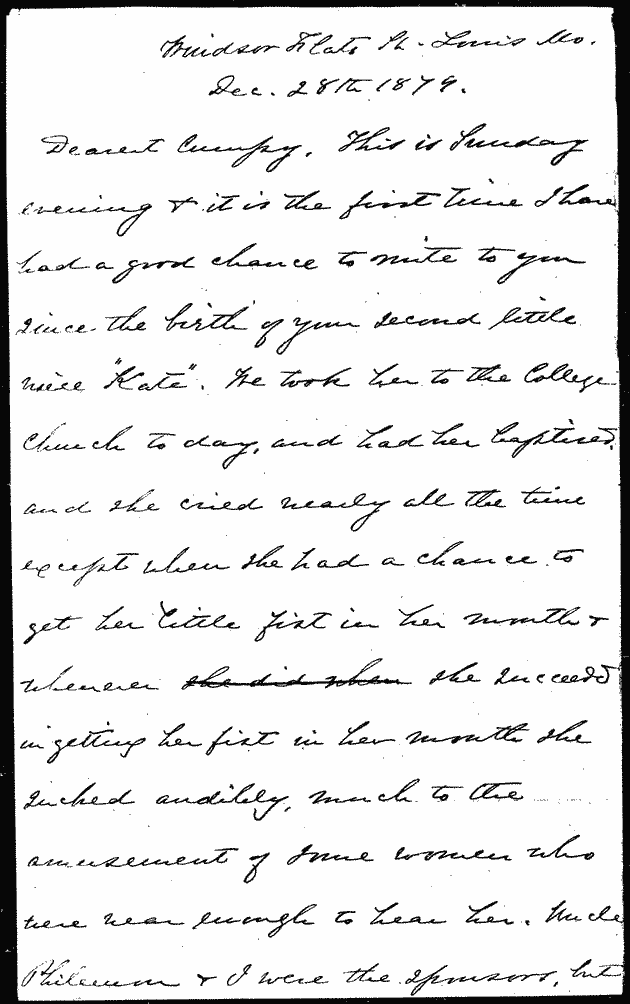 Windsor Flats St. Louis Mo.
Dec. 28th 1879.
Dearest Cumpy. This is Sunday
evening & it is the first time I have
had a good chance to write to you
since the birth of your second little
niece "Kate". We took her to the College
Church to day, and had her baptised.
and she cried nearly all the time
except when she had a chance to
get her little fist in her mouth &
whenever she did when she succeeds
in getting her fist in her mouth she
sucked audibly, much to the
amusement of some women who
were near enough to hear her. Uncle
Philemon & I were the sponsors, but